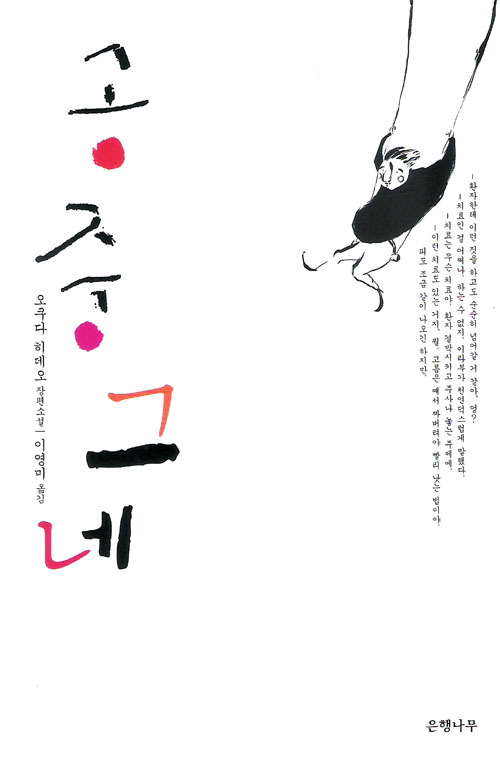 공중그네
오쿠다 히데오 장편소설 | 이영미 옮김
–환자한테 이런 짓을 하고도 순순히 넘어갈 거 같아, 엉?
–치료인 걸 어쩌나, 하는 수 없지. 이라부가 천연덕스럽게 말했다.
–치료는 무슨 치료야. 환자 결박시키고 주사나 놓는 주제에.
–이런 치료도 있는 거지, 뭘. 고름은 째서 짜버려야 빨리 낫는 법이야.
피도 조금 같이 나오긴 하지만.
은행나무